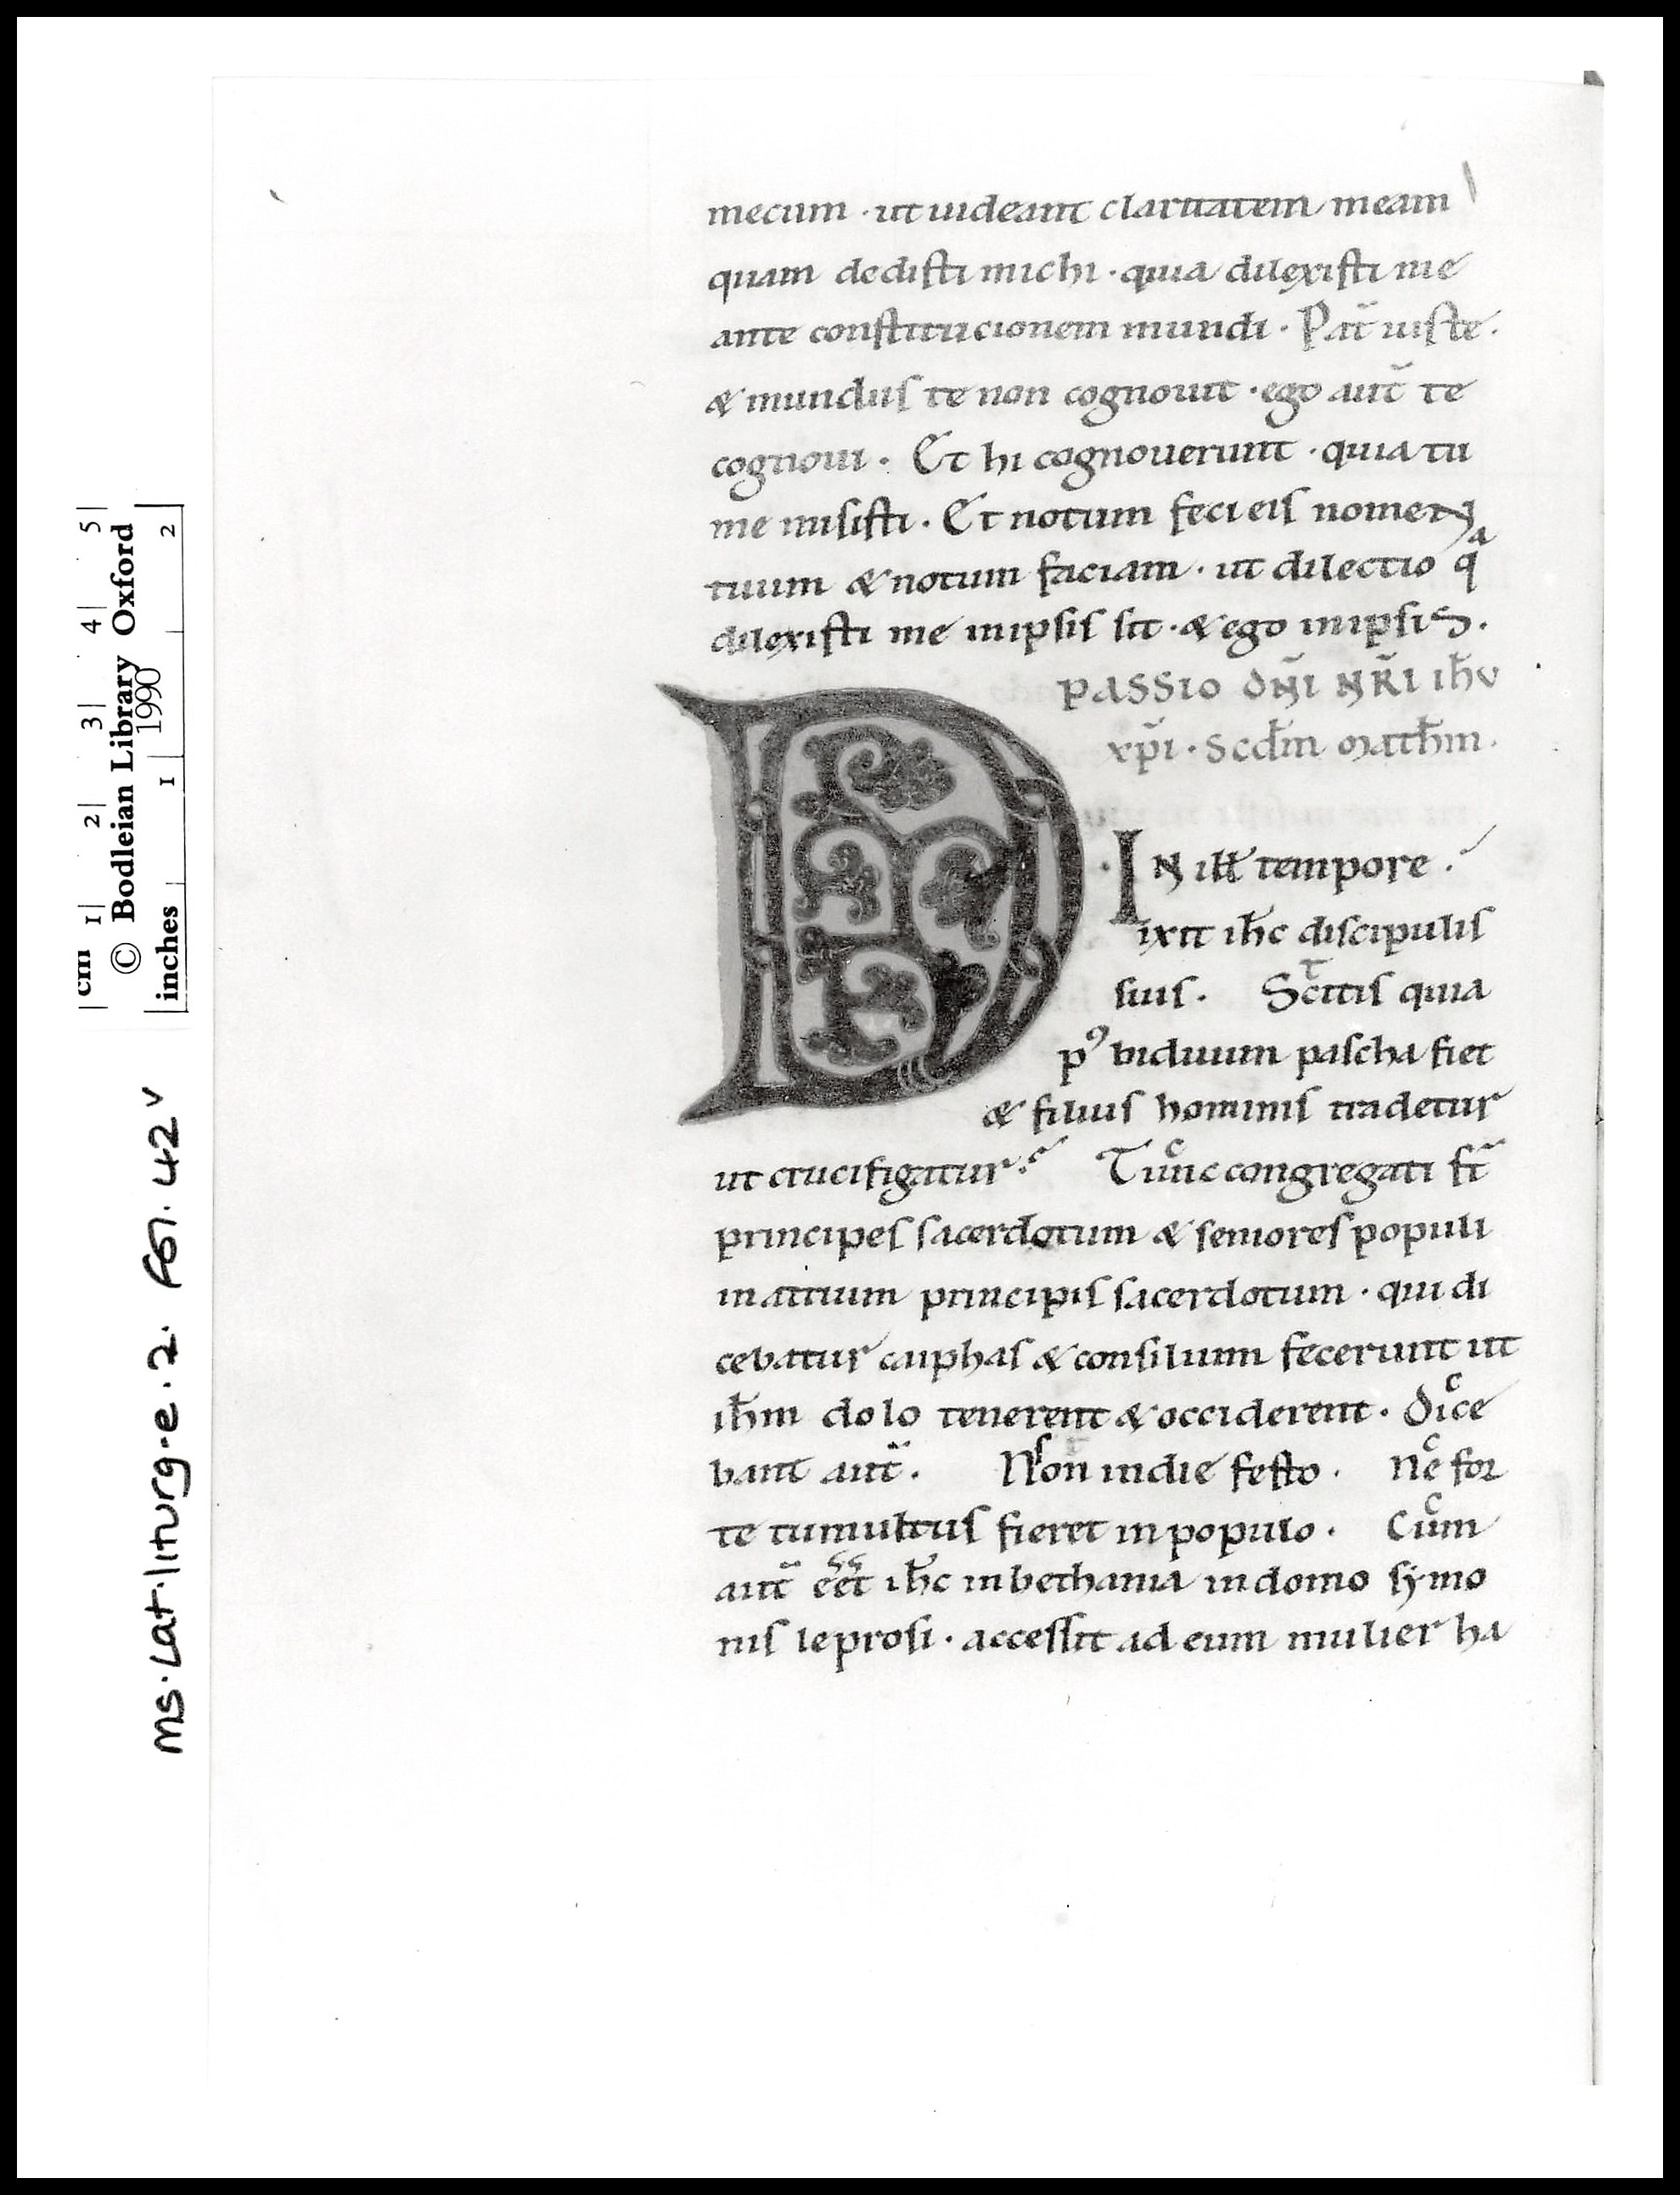 mecum · ut uideant claritatem meam
quam dedisti michi · quia dilexisti me
ante constitucionem mundi · Pat̄ iuste ·
& mundus te non cognouit · ego aut̄ te
cognoui · Et hi cognouerunt · quia tu
me misisti · Et notum feci eis nomen
tuum & notum faciam · ut dilectio qᵃ
dilexisti me inipsis sit · & ego inipsis ·
PASSIO DN̄I NR̄I IHV̄
XP̄I · Scd̄m Math̄m ·
IN ilł tempore ·
Dixit ih̄c discipulis
suis · Scitis quia
pꝰ biduum pascha fiet
& filius hominis tradetur
ut crucifigatur · Tunc congregati st̄
principes sacerdotum & seniores populi
in atrium principis sacerdotum · qui di
cebatur caiphas & consilium fecerunt ut
ih̄m dolo tenerent & occiderent · Dice
bant aut̄ · Non indie festo · Ne for
te tumultus fieret in populo · Cum
aut̄ eēt ih̄c in bethania in domo symo
nis leprosi · accessit ad eum mulier ha
cm 1 2 3 4 5
© Bodleian Library Oxford
1990
inches 1 2
MS. Lat. liturg. e. 2. fol. 42 v